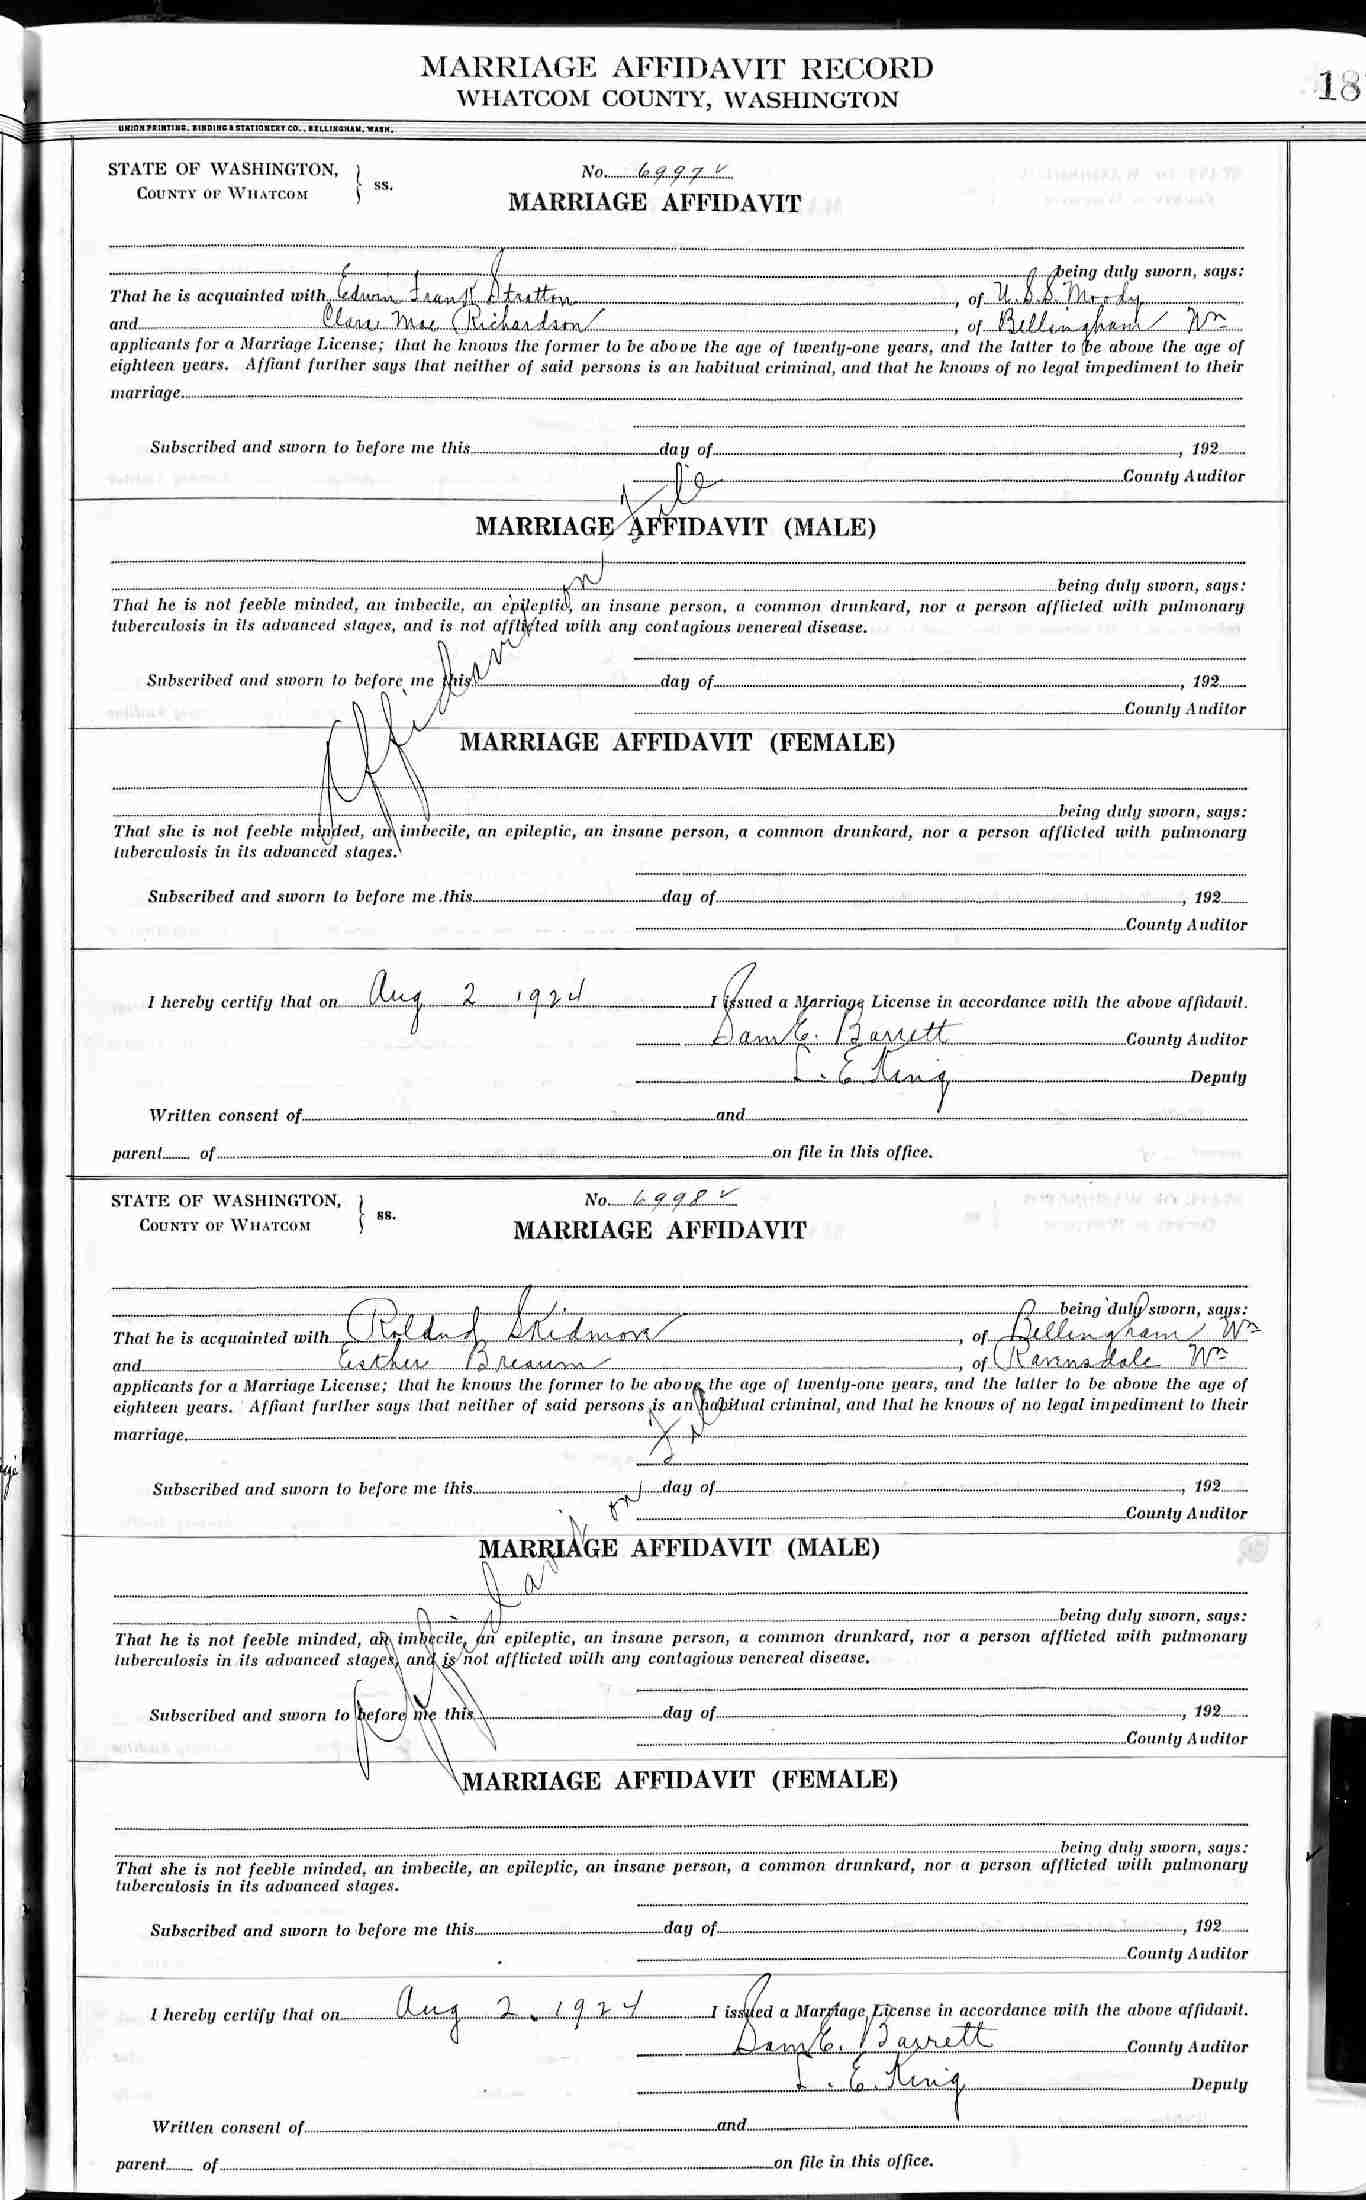 MARRIAGE AFFIDAVIT RECORD
WHATCOM COUNTY, WASHINGTON
18
UNION PRINTING, BINDING & STATIONERY CO., BELLINGHAM, WASH.
STATE OF WASHINGTON,
COUNTY OF WHATCOM } ss.
No. 6997 ✓
MARRIAGE AFFIDAVIT
being duly sworn, says:
That he is acquainted with Edwin Frank Stratton, of U.S.S. Moody
and Clara Mae Richardson, of Bellingham Wn
applicants for a Marriage License; that he knows the former to be above the age of twenty-one years, and the latter to be above the age of
eighteen years. Affiant further says that neither of said persons is an habitual criminal, and that he knows of no legal impediment to their
marriage.
Subscribed and sworn to before me this day of , 192
County Auditor
Affidavit on file
MARRIAGE AFFIDAVIT (MALE)
being duly sworn, says:
That he is not feeble minded, an imbecile, an epileptic, an insane person, a common drunkard, nor a person afflicted with pulmonary
tuberculosis in its advanced stages, and is not afflicted with any contagious venereal disease.
Subscribed and sworn to before me this day of , 192
County Auditor
MARRIAGE AFFIDAVIT (FEMALE)
being duly sworn, says:
That she is not feeble minded, an imbecile, an epileptic, an insane person, a common drunkard, nor a person afflicted with pulmonary
tuberculosis in its advanced stages.
Subscribed and sworn to before me this day of , 192
County Auditor
I hereby certify that on Aug 2 1924 I issued a Marriage License in accordance with the above affidavit.
Sam E. Barrett County Auditor
L. E. King Deputy
Written consent of and
parent of on file in this office.
STATE OF WASHINGTON,
COUNTY OF WHATCOM } ss.
No. 6998 ✓
MARRIAGE AFFIDAVIT
being duly sworn, says:
That he is acquainted with Roland Skidmore, of Bellingham Wn
and Esther Breaum, of Ravensdale Wn
applicants for a Marriage License; that he knows the former to be above the age of twenty-one years, and the latter to be above the age of
eighteen years. Affiant further says that neither of said persons is an habitual criminal, and that he knows of no legal impediment to their
marriage.
Subscribed and sworn to before me this day of , 192
County Auditor
Affidavit on file
MARRIAGE AFFIDAVIT (MALE)
being duly sworn, says:
That he is not feeble minded, an imbecile, an epileptic, an insane person, a common drunkard, nor a person afflicted with pulmonary
tuberculosis in its advanced stages, and is not afflicted with any contagious venereal disease.
Subscribed and sworn to before me this day of , 192
County Auditor
MARRIAGE AFFIDAVIT (FEMALE)
being duly sworn, says:
That she is not feeble minded, an imbecile, an epileptic, an insane person, a common drunkard, nor a person afflicted with pulmonary
tuberculosis in its advanced stages.
Subscribed and sworn to before me this day of , 192
County Auditor
I hereby certify that on Aug 2. 1924 I issued a Marriage License in accordance with the above affidavit.
Sam E. Barrett County Auditor
L. E. King Deputy
Written consent of and
parent of on file in this office.